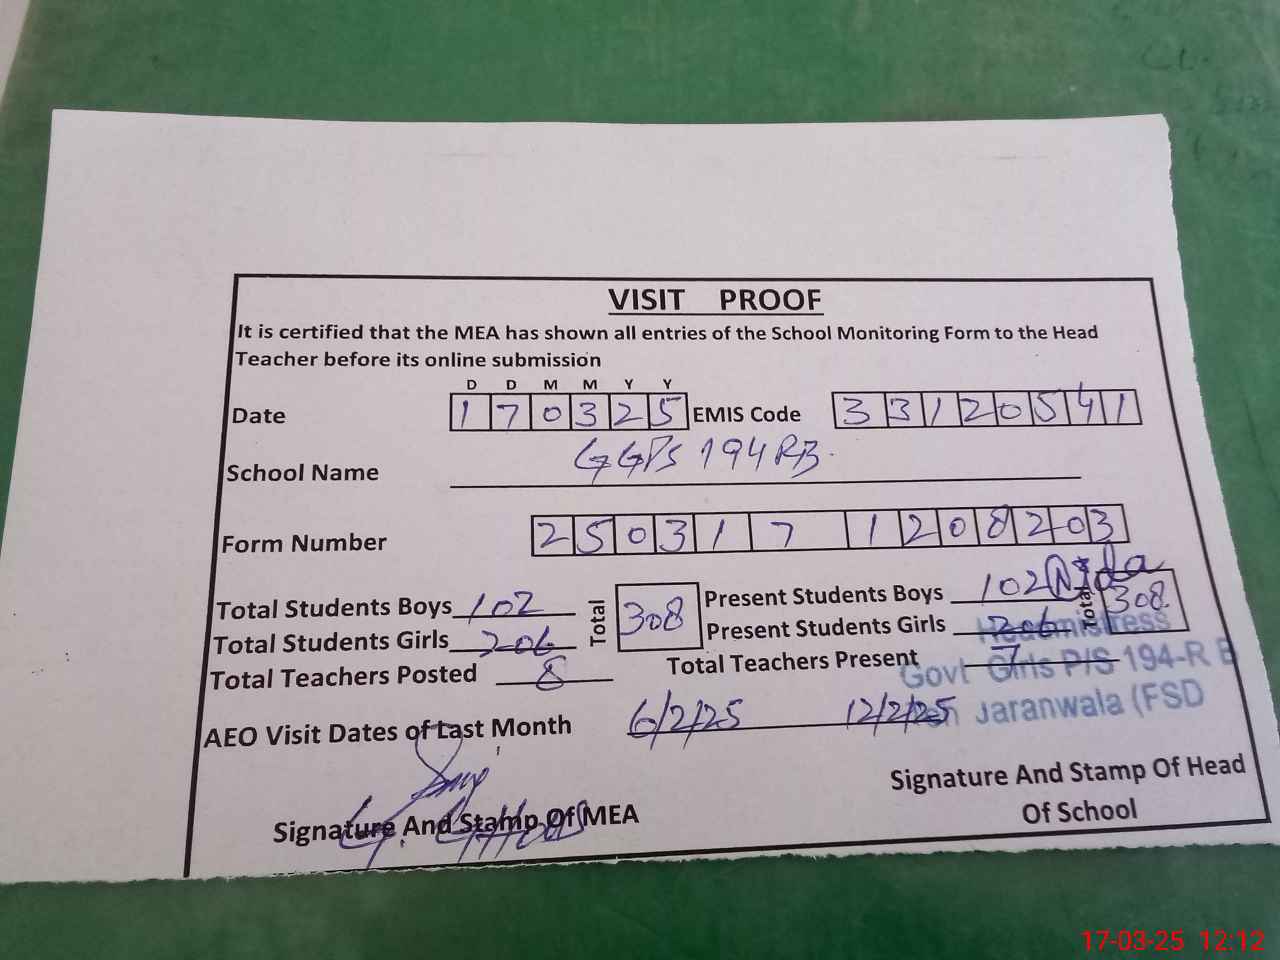 VISIT PROOF
It is certified that the MEA has shown all entries of the School Monitoring Form to the Head
Teacher before its online submission
D D M M Y Y
Date 1 7 0 3 2 5 EMIS Code 3 3 1 2 0 5 4 1
School Name GGPS 194 RB
Form Number 2 5 0 3 1 7 1 2 0 8 2 0 3
Total Students Boys 102 Total 308 Present Students Boys 102 Nida Total 308
Total Students Girls 206 Present Students Girls 206
Headmistress
Total Teachers Posted 8 Total Teachers Present 7
Govt Girls P/S 194-R B
AEO Visit Dates of Last Month 6/2/25 12/2/25
Jaranwala (FSD
Signature And Stamp Of MEA
Signature And Stamp Of Head
Of School
17-03-25 12:12